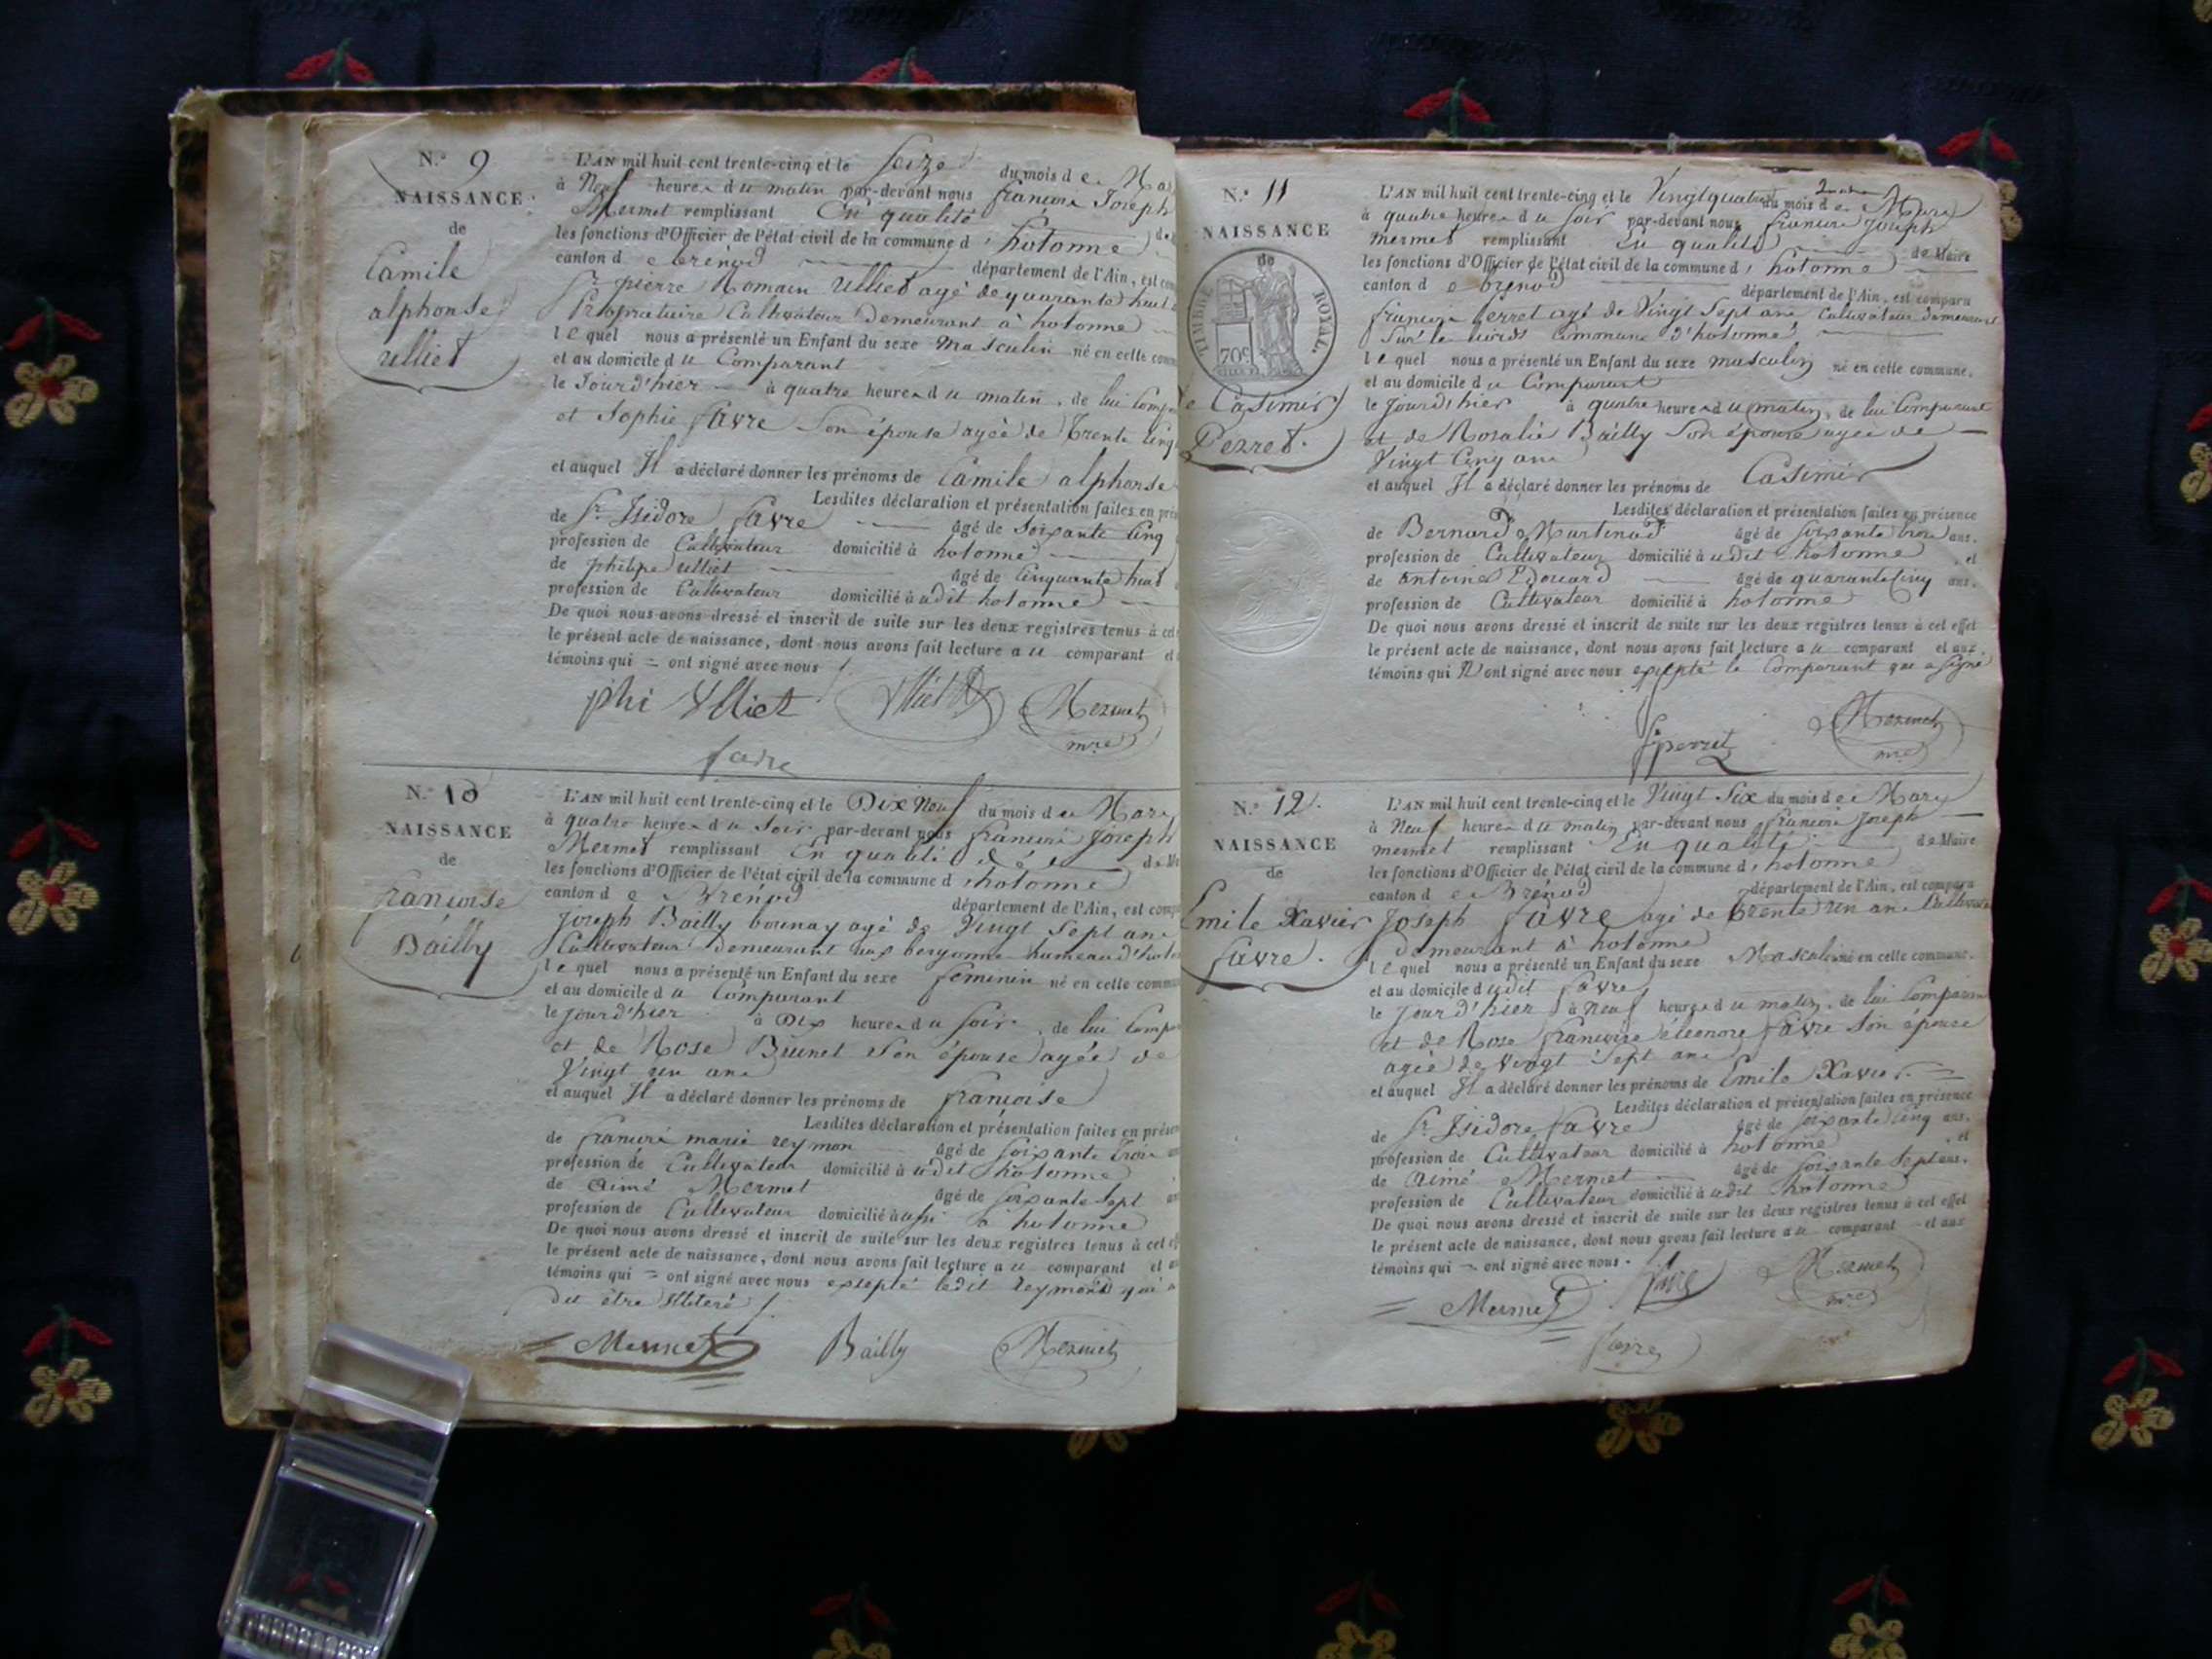 N.° 9
NAISSANCE
de
Camile
alphonse
ulliet
L'AN mil huit cent trente-cinq et le Seize du mois d e
à Neuf heures d u matin par-devant nous françois Joseph
Mermet remplissant En qualité
les fonctions d'Officier de l'état civil de la commune d' hotonne
canton d e brenod département de l'Ain, est
Sr. pierre Romain Ulliet agé de quarante huit
Propriétaire Cultivateur Demeurant à hotonne
le quel nous a présenté un Enfant du sexe masculin né en cette
et au domicile d u Comparant
le Jour d'hier à quatre heures d u matin, de lui
et Sophie favre Son épouse agée de Trente Cinq
et auquel Il a déclaré donner les prénoms de Camile alphonse
Lesdites déclaration et présentation faites en
de Sr. Isidore favre âgé de Soixante Cinq
profession de Cultivateur domicilié à hotonne
de philipe ulliet âgé de Cinquante huit
profession de Cultivateur domicilié à udit hotonne
De quoi nous avons dressé et inscrit de suite sur les deux registres tenus à
le présent acte de naissance, dont nous avons fait lecture a u comparant
témoins qui = ont signé avec nous
phi Ulliet Ulliet Mermet
mre
favre
N.° 10
NAISSANCE
de
françoise
Bailly
L'AN mil huit cent trente-cinq et le Dix Neuf du mois d e Mars
à quatre heures d u Soir par-devant nous françois Joseph
Mermet remplissant En qualité
les fonctions d'Officier de l'état civil de la commune d' hotonne
canton d e Brénod département de l'Ain, est
Joseph Bailly bounay agé de Vingt Sept ans
Cultivateur demeurant aux bergonne hameau
le quel nous a présenté un Enfant du sexe feminin né en cette
et au domicile d u Comparant
le jour d'hier à Dix heures d u Soir, de lui
et de Rose Brunet Son épouse agée de
Vingt un ans
et auquel Il a déclaré donner les prénoms de françoise
Lesdites déclaration et présentation faites en
de françois marie reymon âgé de Soixante Trois
profession de Cultivateur domicilié à udit hotonne
de Aimé Mermet âgé de Soixante Sept
profession de Cultivateur domicilié à ussi à hotonne
De quoi nous avons dressé et inscrit de suite sur les deux registres tenus à cet
le présent acte de naissance, dont nous avons fait lecture a u comparant et
témoins qui = ont signé avec nous exepté ledit reymond qui a
dit être illiteré
Mermet Bailly Mermet
N.° 11
NAISSANCE
de
TIMBRE ROYAL.
70c
Casimir
Perret.
L'AN mil huit cent trente-cinq et le Vingt quatre du mois d e Mars
à quatre heures d u Soir par-devant nous françois Joseph
mermet remplissant En qualité de Maire
les fonctions d'Officier de l'état civil de la commune d' hotonne
canton d e brenod département de l'Ain, est comparu
françois perret agé de Vingt Sept ans Cultivateur demeurant
Sur le Commune d'hotonne
le quel nous a présenté un Enfant du sexe masculin né en cette commune,
et au domicile d u Comparant
le Jour d'hier à quatre heures d u matin, de lui Comparant
et de Rosalie Bailly Son épouse agée de
Vingt Cinq ans
et auquel Il a déclaré donner les prénoms de Casimir
Lesdites déclaration et présentation faites en présence
de Bernard Martinod âgé de Soixante trois ans,
profession de Cultivateur domicilié à udit hotonne, et
de Antoine Edouard âgé de quarante Cinq ans,
profession de Cultivateur domicilié à hotonne
De quoi nous avons dressé et inscrit de suite sur les deux registres tenus à cet effet
le présent acte de naissance, dont nous avons fait lecture a u comparant et aux
témoins qui N'ont signé avec nous exepté le Comparant qui a signé
fperret
Mermet
mre
N.° 12.
NAISSANCE
de
Emile Xavier
favre.
L'AN mil huit cent trente-cinq et le Vingt Six du mois d e Mars
à Neuf heures d u matin par-devant nous françois Joseph
mermet remplissant En qualité de Maire
les fonctions d'Officier de l'état civil de la commune d' hotonne
canton d e Brénod département de l'Ain, est comparu
Joseph favre agé de trente un ans
demeurant à hotonne
le quel nous a présenté un Enfant du sexe Masculin né en cette commune,
et au domicile d udit favre
le jour d'hier à Neuf heures d u matin, de lui Comparant
et de Rose françoise éleonore favre Son épouse
agée de Vingt Sept ans
et auquel Il a déclaré donner les prénoms de Emile Xavier
Lesdites déclaration et présentation faites en présence
de Sr. Isidore favre âgé de Soixante Cinq ans,
profession de Cultivateur domicilié à hotonne, et
de Aimé Mermet âgé de Soixante Sept ans,
profession de Cultivateur domicilié à udit hotonne
De quoi nous avons dressé et inscrit de suite sur les deux registres tenus à cet effet
le présent acte de naissance, dont nous avons fait lecture a u comparant et aux
témoins qui = ont signé avec nous.
Mermet favre Mermet
mre
favre